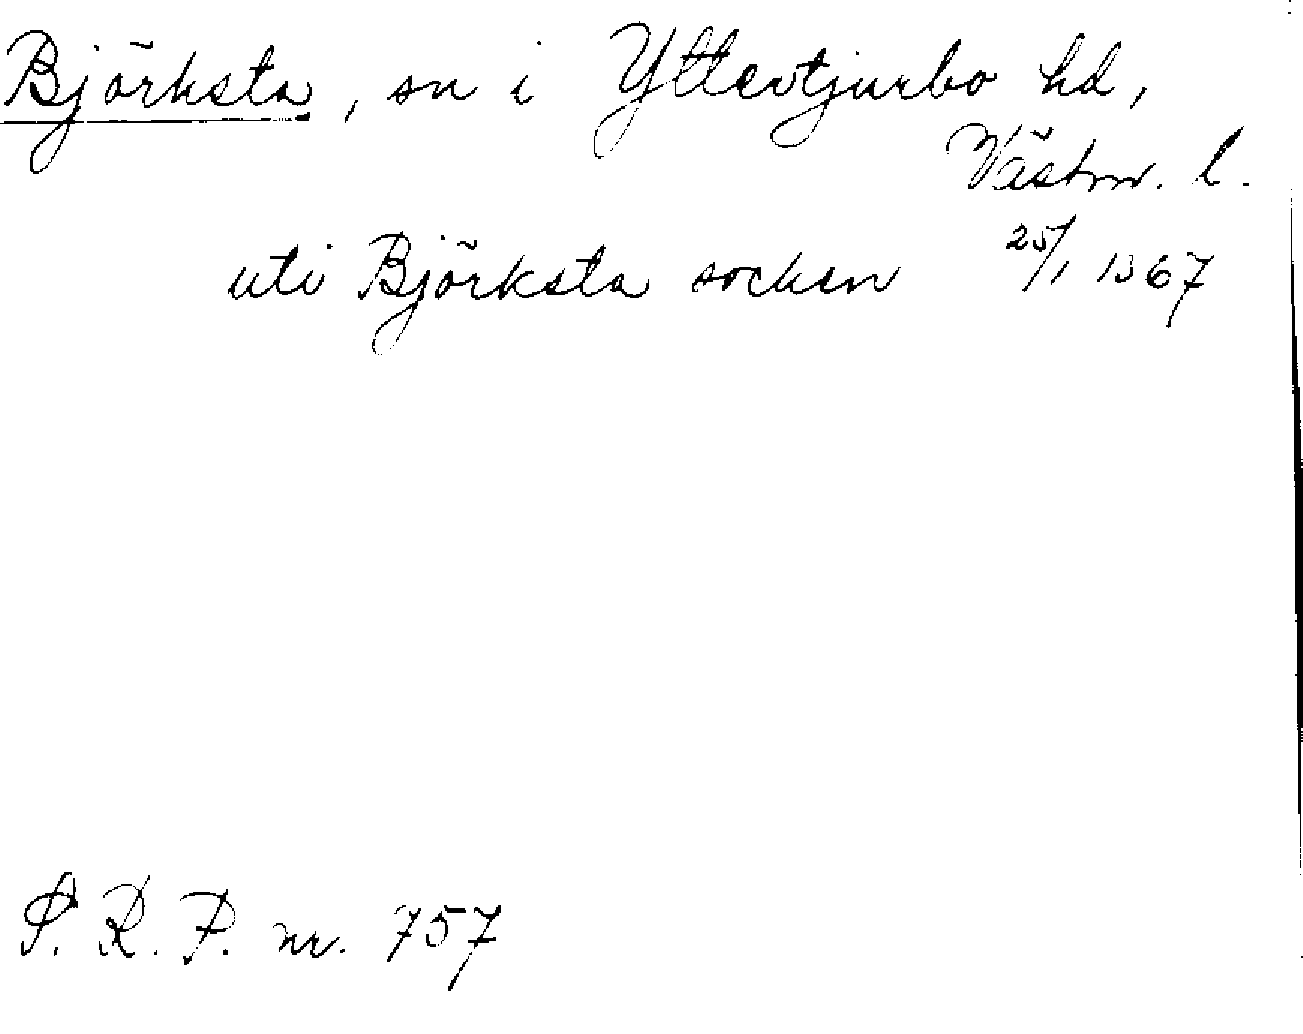 Björksta, sn i Yttertjurbo hd,
Västm. l.
uti Björksta socken 25/1 1367
S. R. P. nr. 757